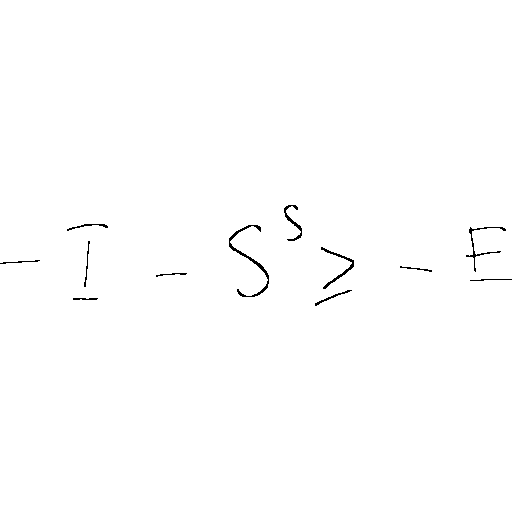 - I - S^s ≥ - E